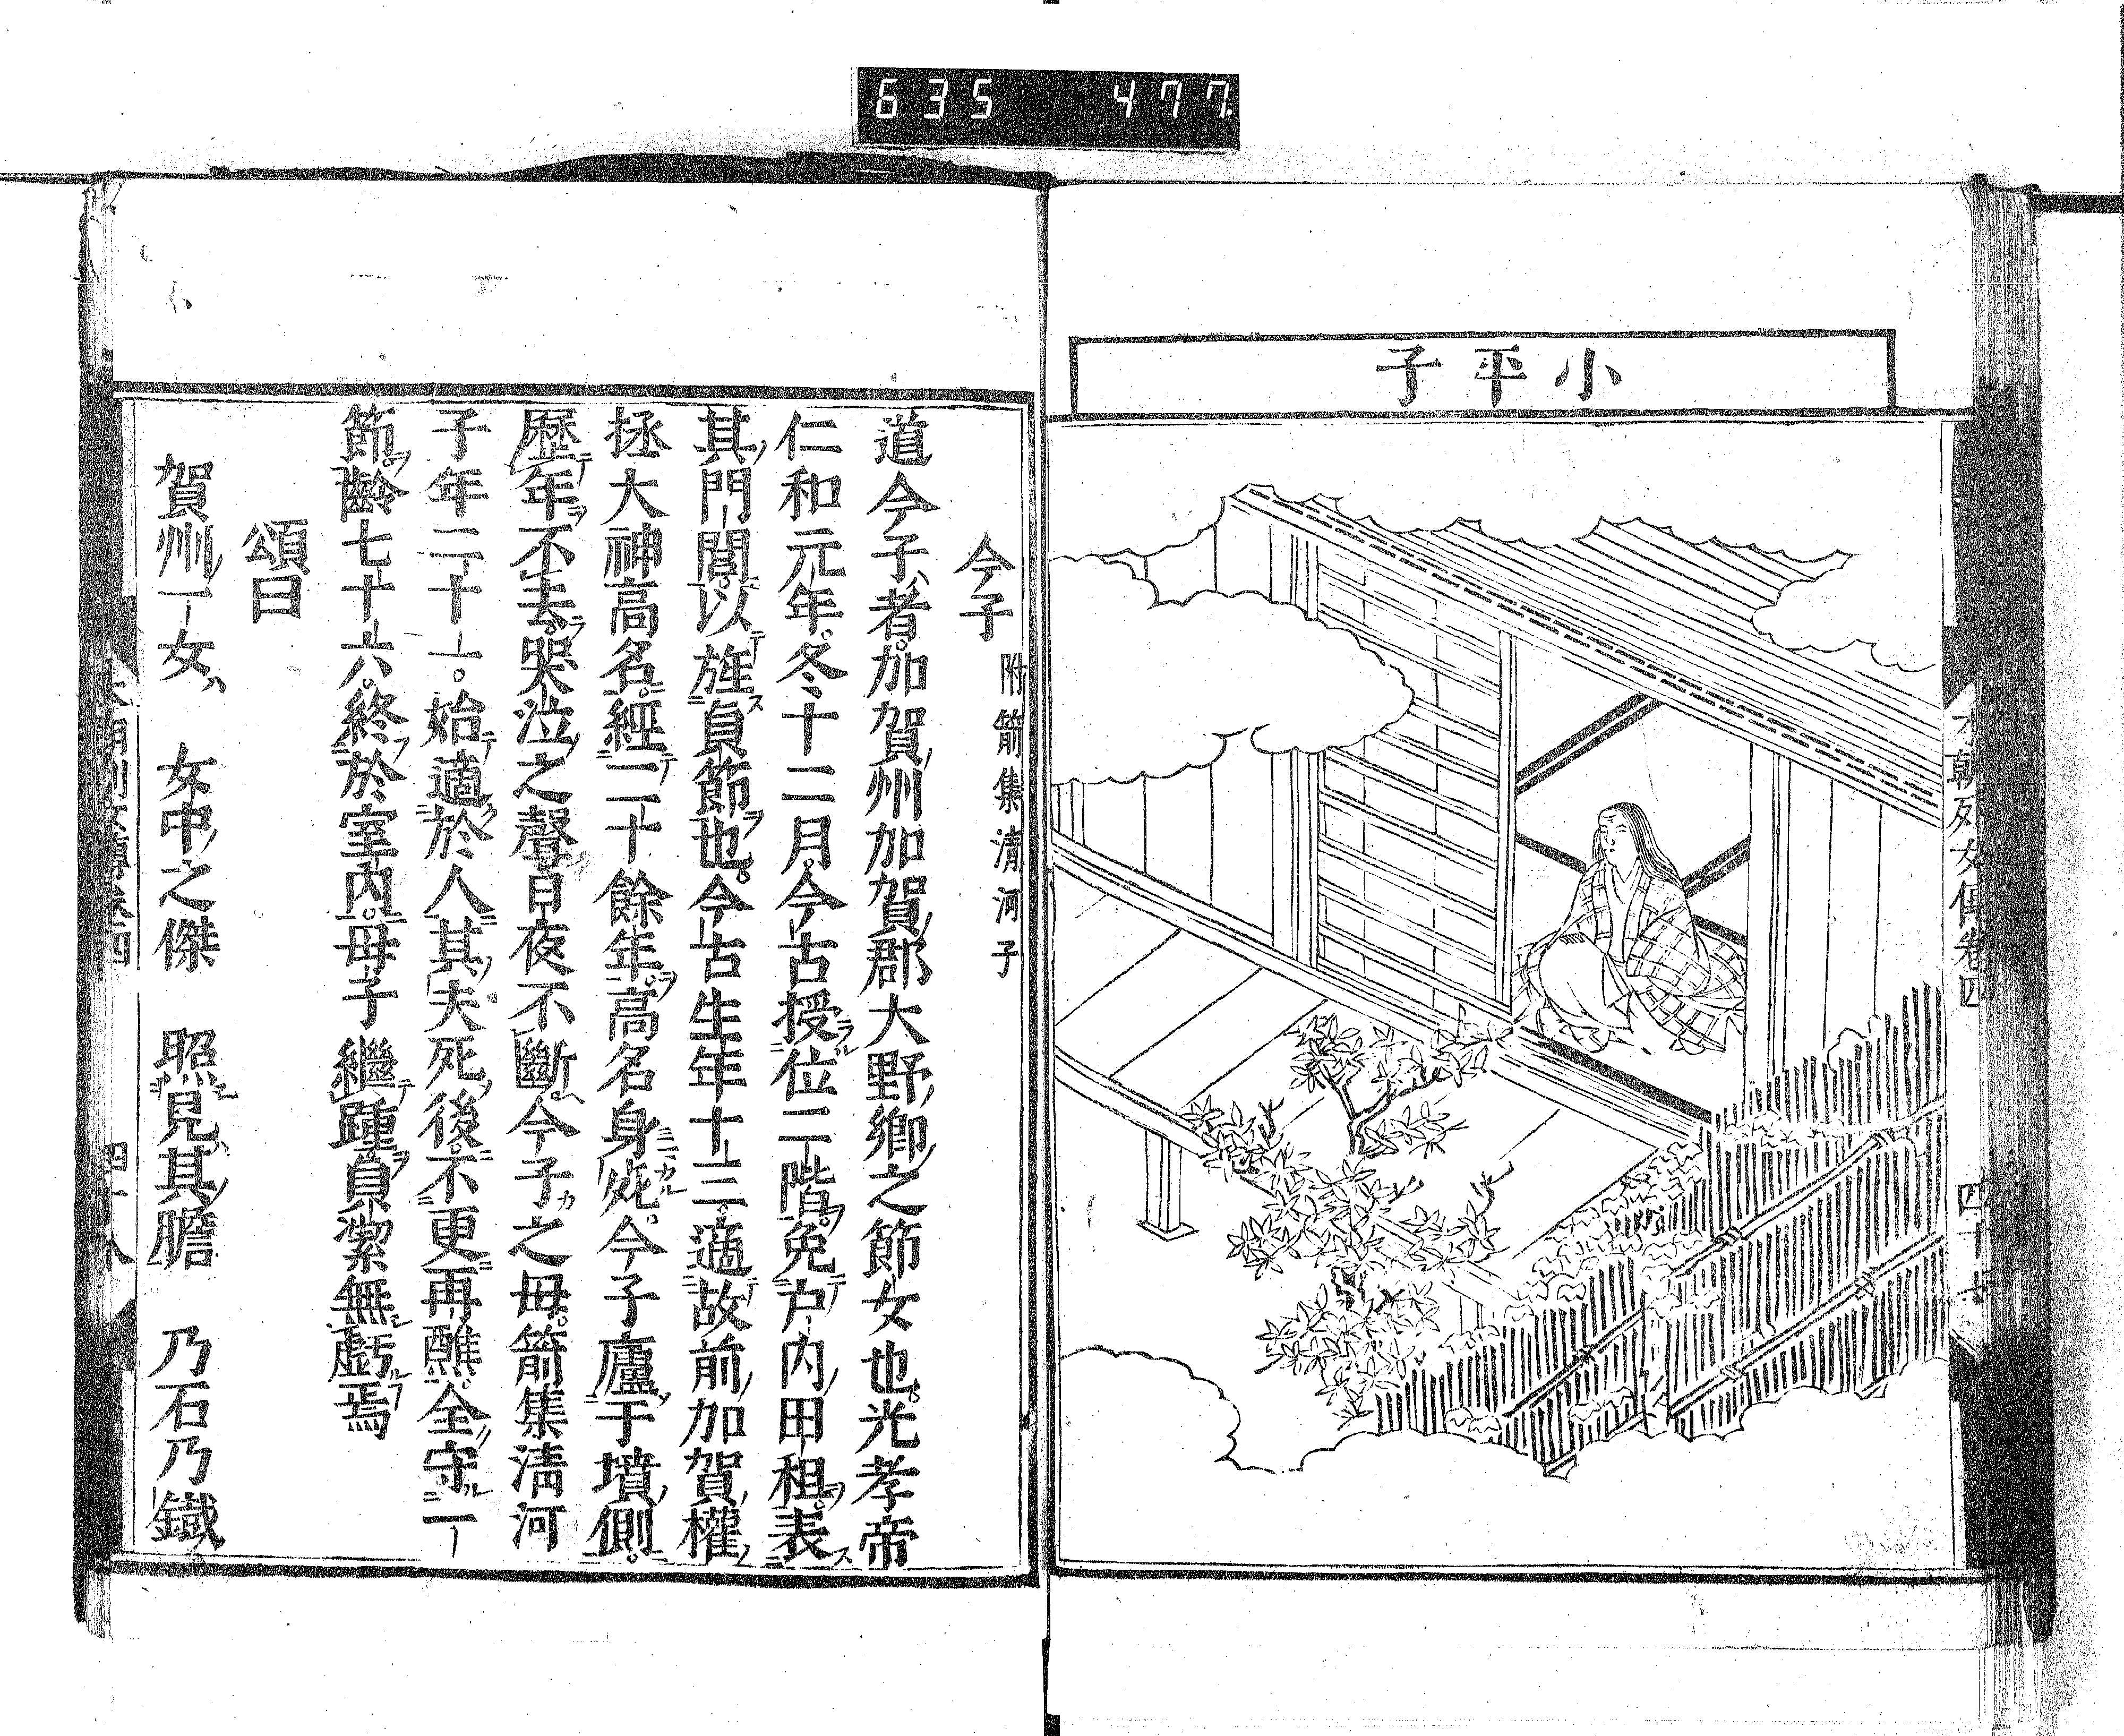 635 477
小平子
本朝列女傳卷四 四十七
今子 附箭集清河子
道今子者。加賀州加賀郡大野鄉之節女也。光孝帝
仁和元年。冬十二月。今古授位二階。免戶內田租。表
其門閭。以旌貞節也。今古生年十三。適故前加賀權
拯大神高名。經二十餘年。高名身死。今子廬于墳側。
歷年不去。哭泣之聲日夜不斷。今子之母。箭集清河
子年二十一。始適於人。其夫死後。不更再醮。全守一
節。齡七十六。終於室內。母子繼踵。貞潔無虧焉
頌曰
賀州一女 女中之傑 照見其膽 乃石乃鐵
本朝列女傳卷四 四十八